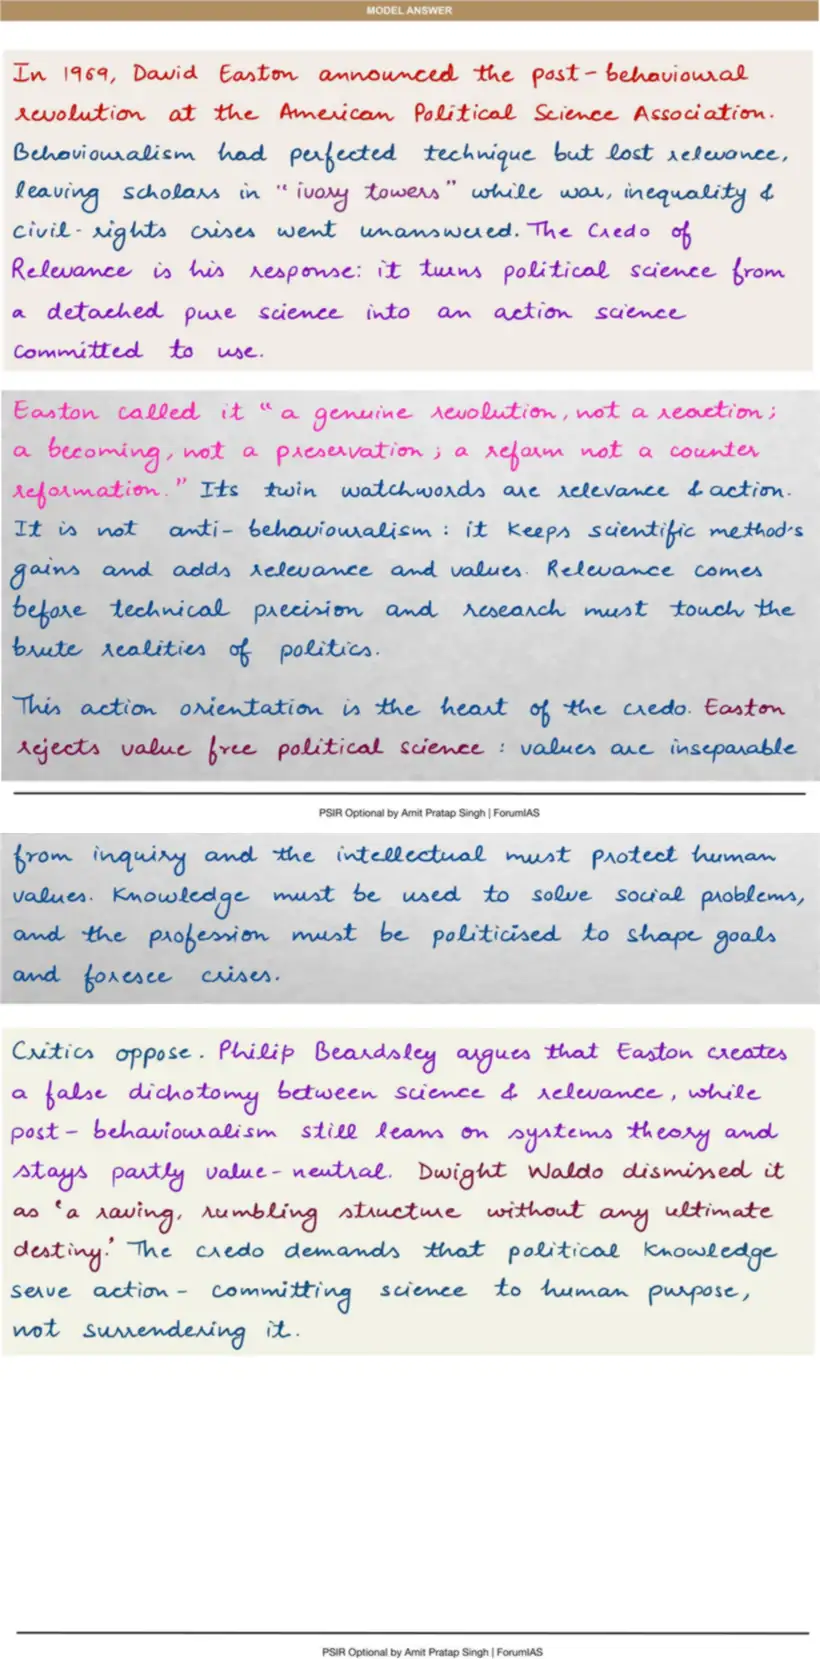 MODEL ANSWER
In 1969, David Easton announced the post-behavioural
revolution at the American Political Science Association.
Behaviouralism had perfected technique but lost relevance,
leaving scholars in "ivory towers" while war, inequality &
civil-rights crises went unanswered. The Credo of
Relevance is his response: it turns political science from
a detached pure science into an action science
committed to use.
Easton called it "a genuine revolution, not a reaction;
a becoming, not a preservation; a reform not a counter
reformation." Its twin watchwords are relevance & action.
It is not anti-behaviouralism: it keeps scientific method's
gains and adds relevance and values. Relevance comes
before technical precision and research must touch the
brute realities of politics.
This action orientation is the heart of the credo. Easton
rejects value free political science: values are inseparable
PSIR Optional by Amit Pratap Singh | ForumIAS
from inquiry and the intellectual must protect human
values. Knowledge must be used to solve social problems,
and the profession must be politicised to shape goals
and foresee crises.
Critics oppose. Philip Beardsley argues that Easton creates
a false dichotomy between science & relevance, while
post-behaviouralism still leans on systems theory and
stays partly value-neutral. Dwight Waldo dismissed it
as 'a raving, rumbling structure without any ultimate
destiny.' The credo demands that political knowledge
serve action- committing science to human purpose,
not surrendering it.
PSIR Optional by Amit Pratap Singh | ForumIAS